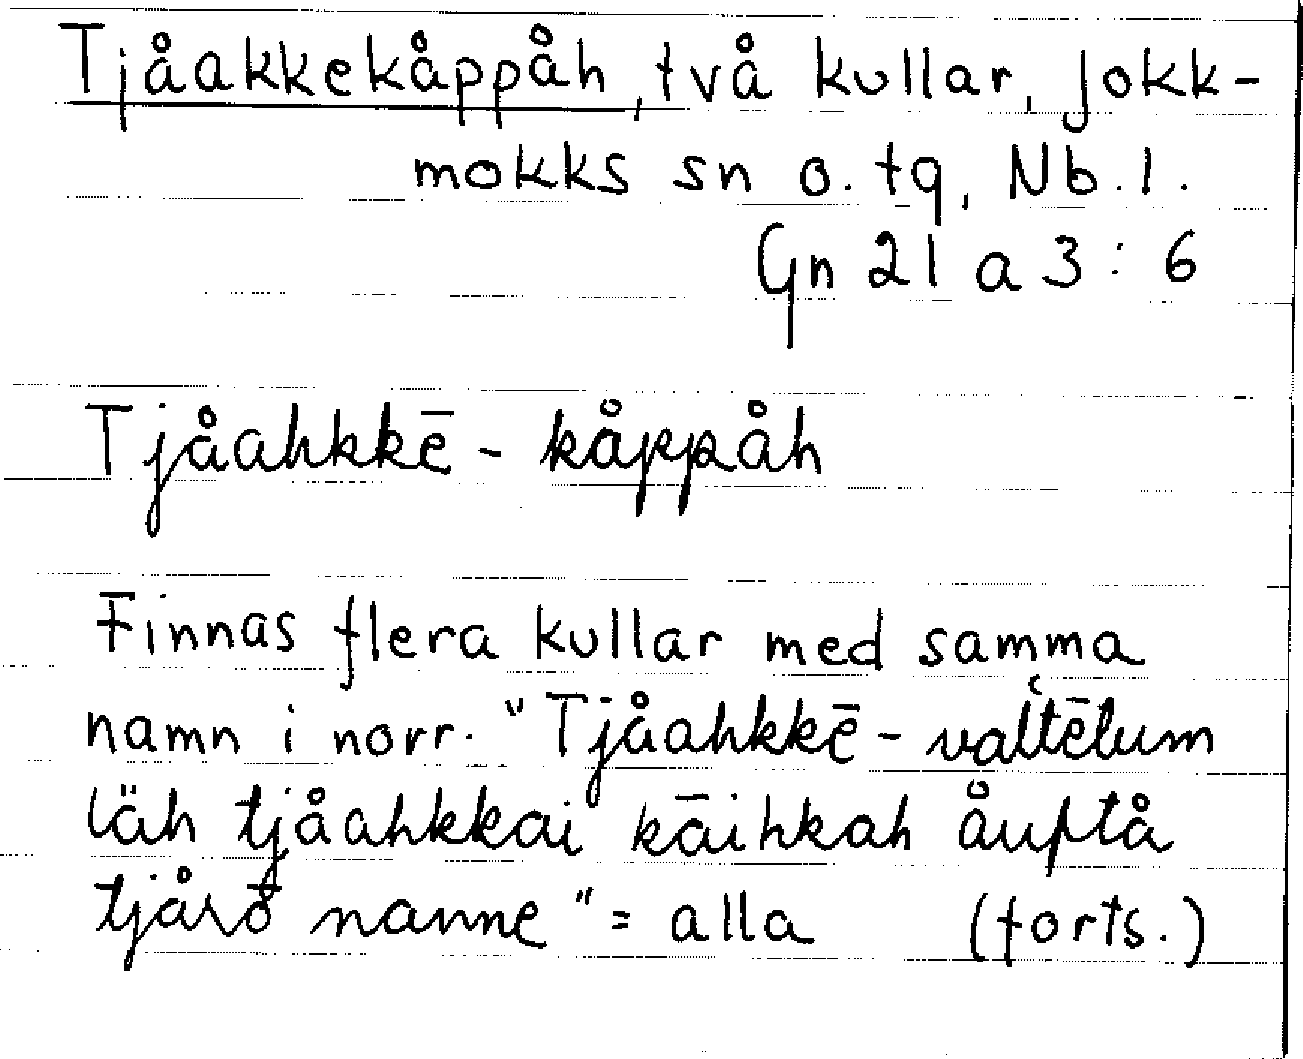 Tjåakkekåppåh, två kullar, Jokk-
mokks sn o. tg, Nb. l.
Gn 21 a 3 : 6
Tjåahkkē - kåppåh
Finnas flera kullar med samma
namn i norr. "Tjåahkkē - valtētum
läh tjåahkkai kāihkah åuptå
tjårō nanne" = alla (forts.)